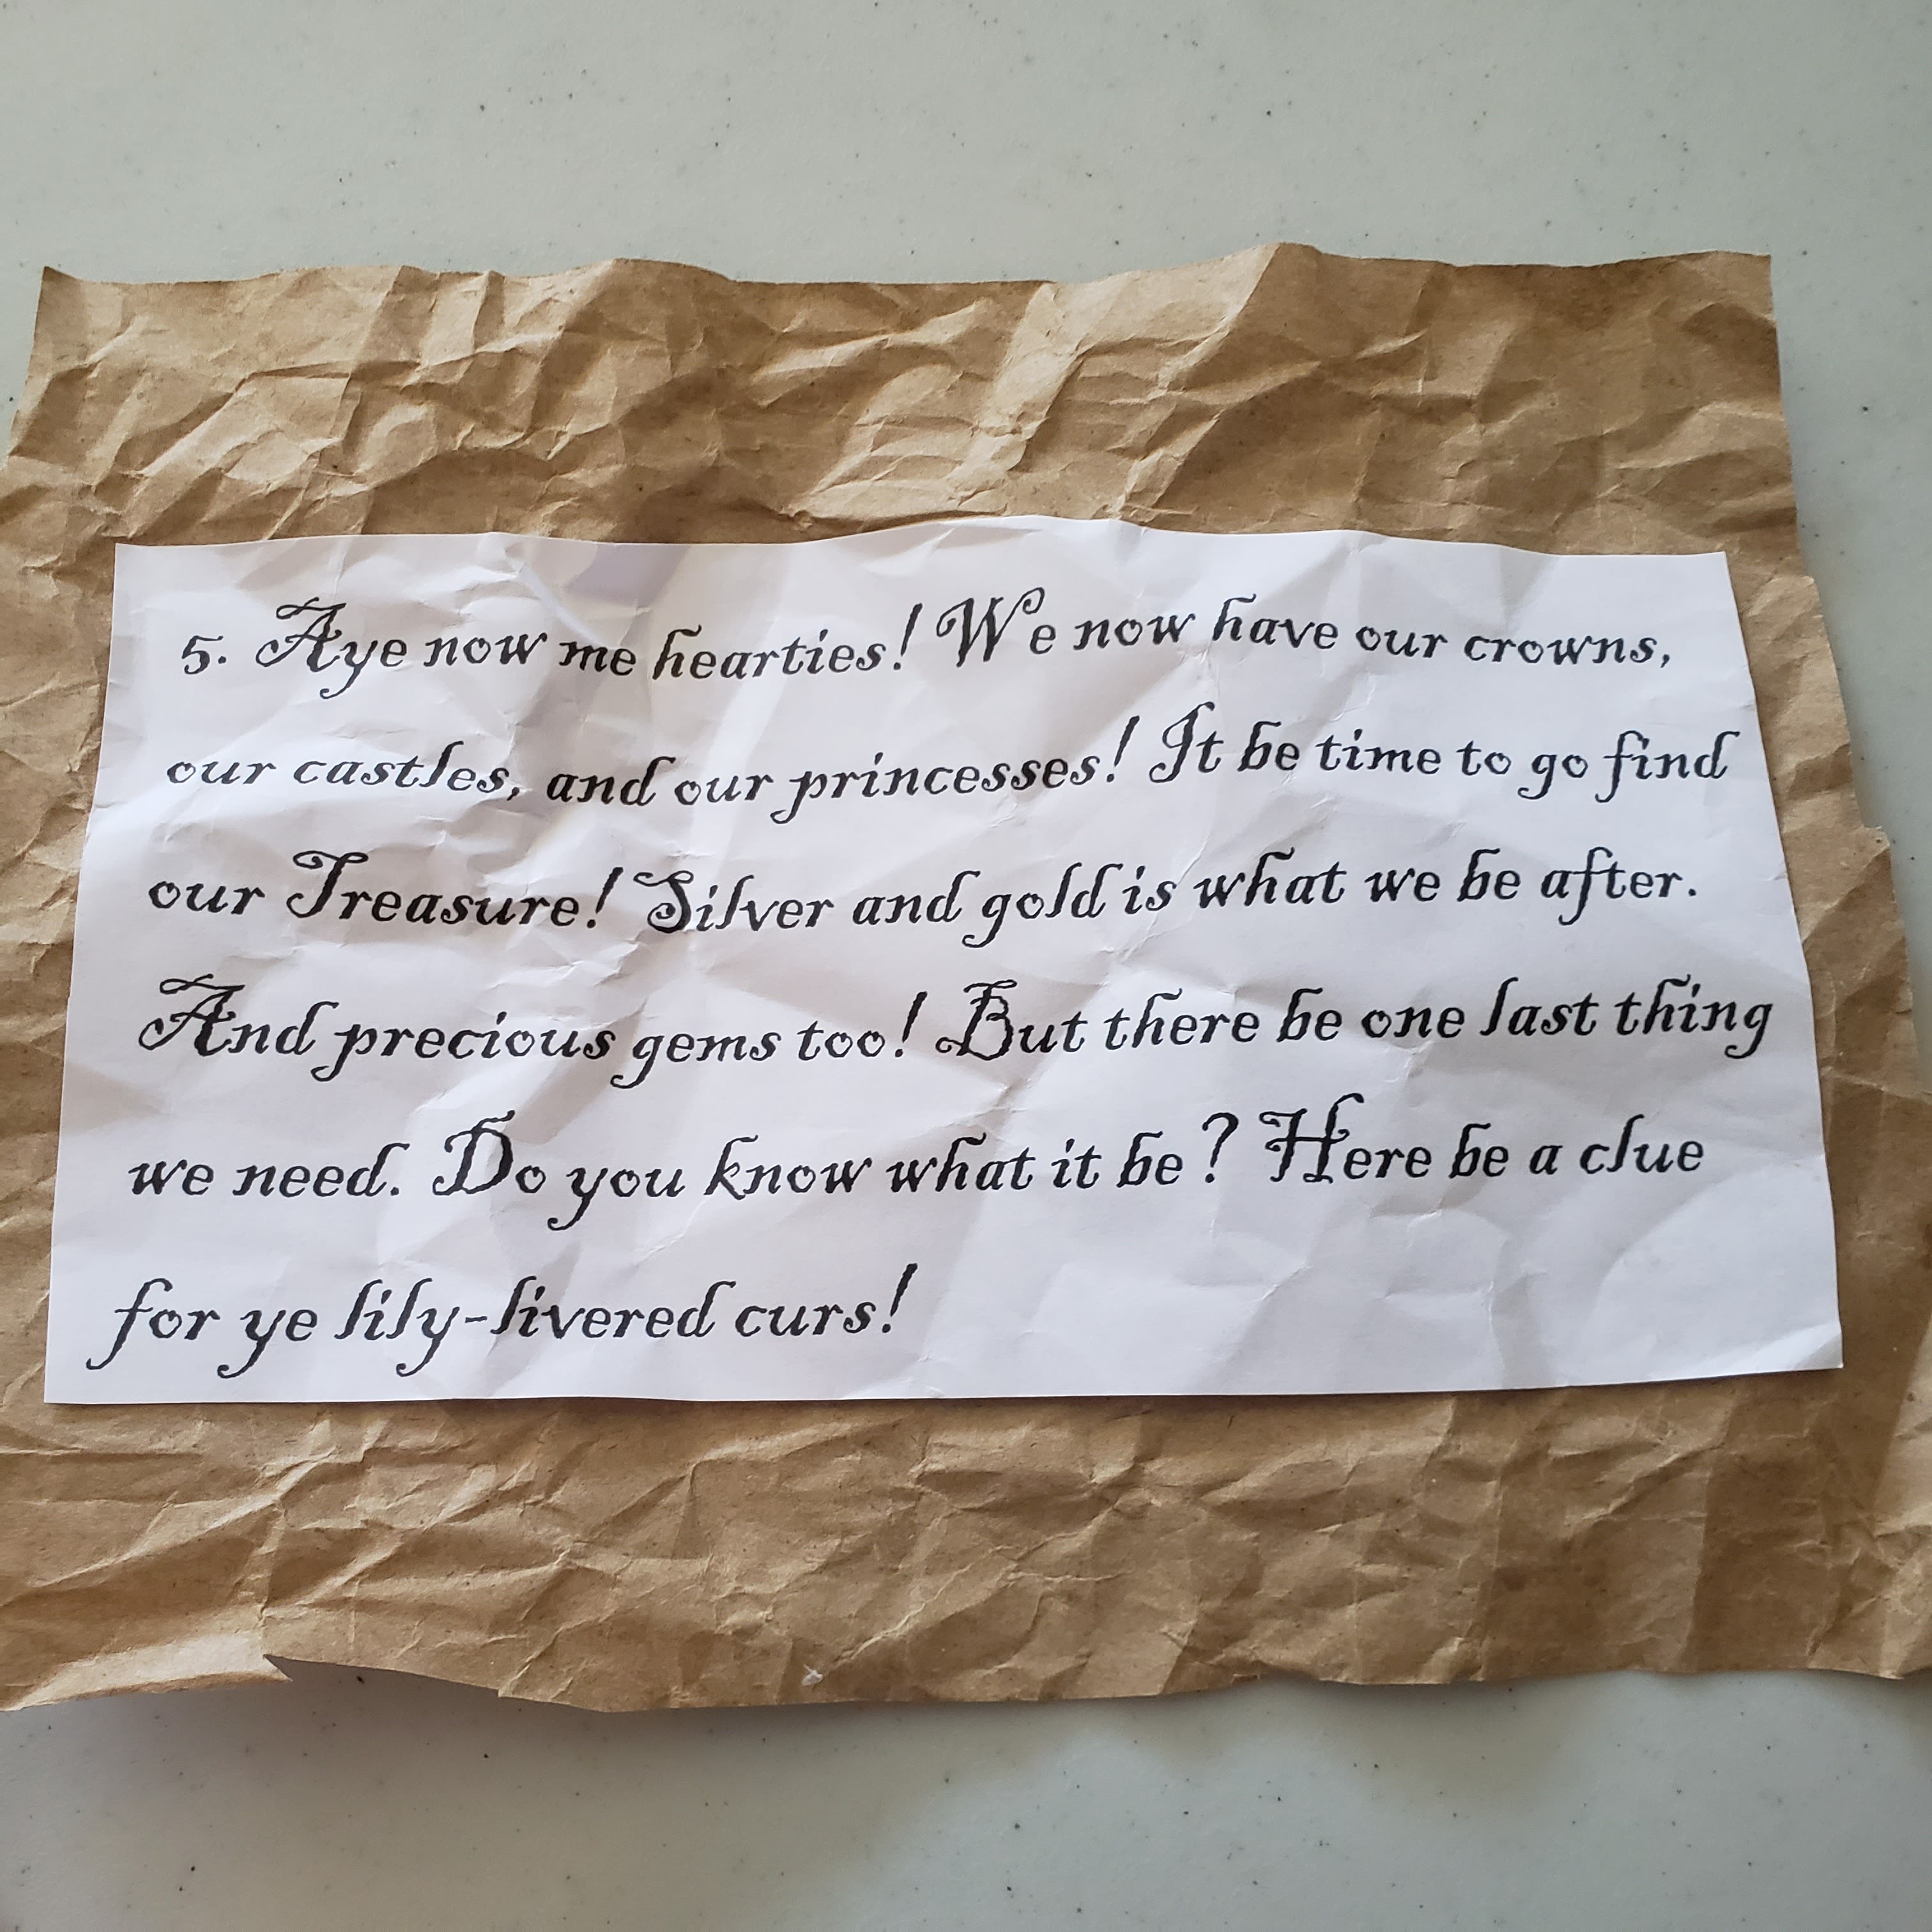 5. Aye now me hearties! We now have our crowns,
our castles, and our princesses! It be time to go find
our Treasure! Silver and gold is what we be after.
And precious gems too! But there be one last thing
we need. Do you know what it be? Here be a clue
for ye lily-livered curs!